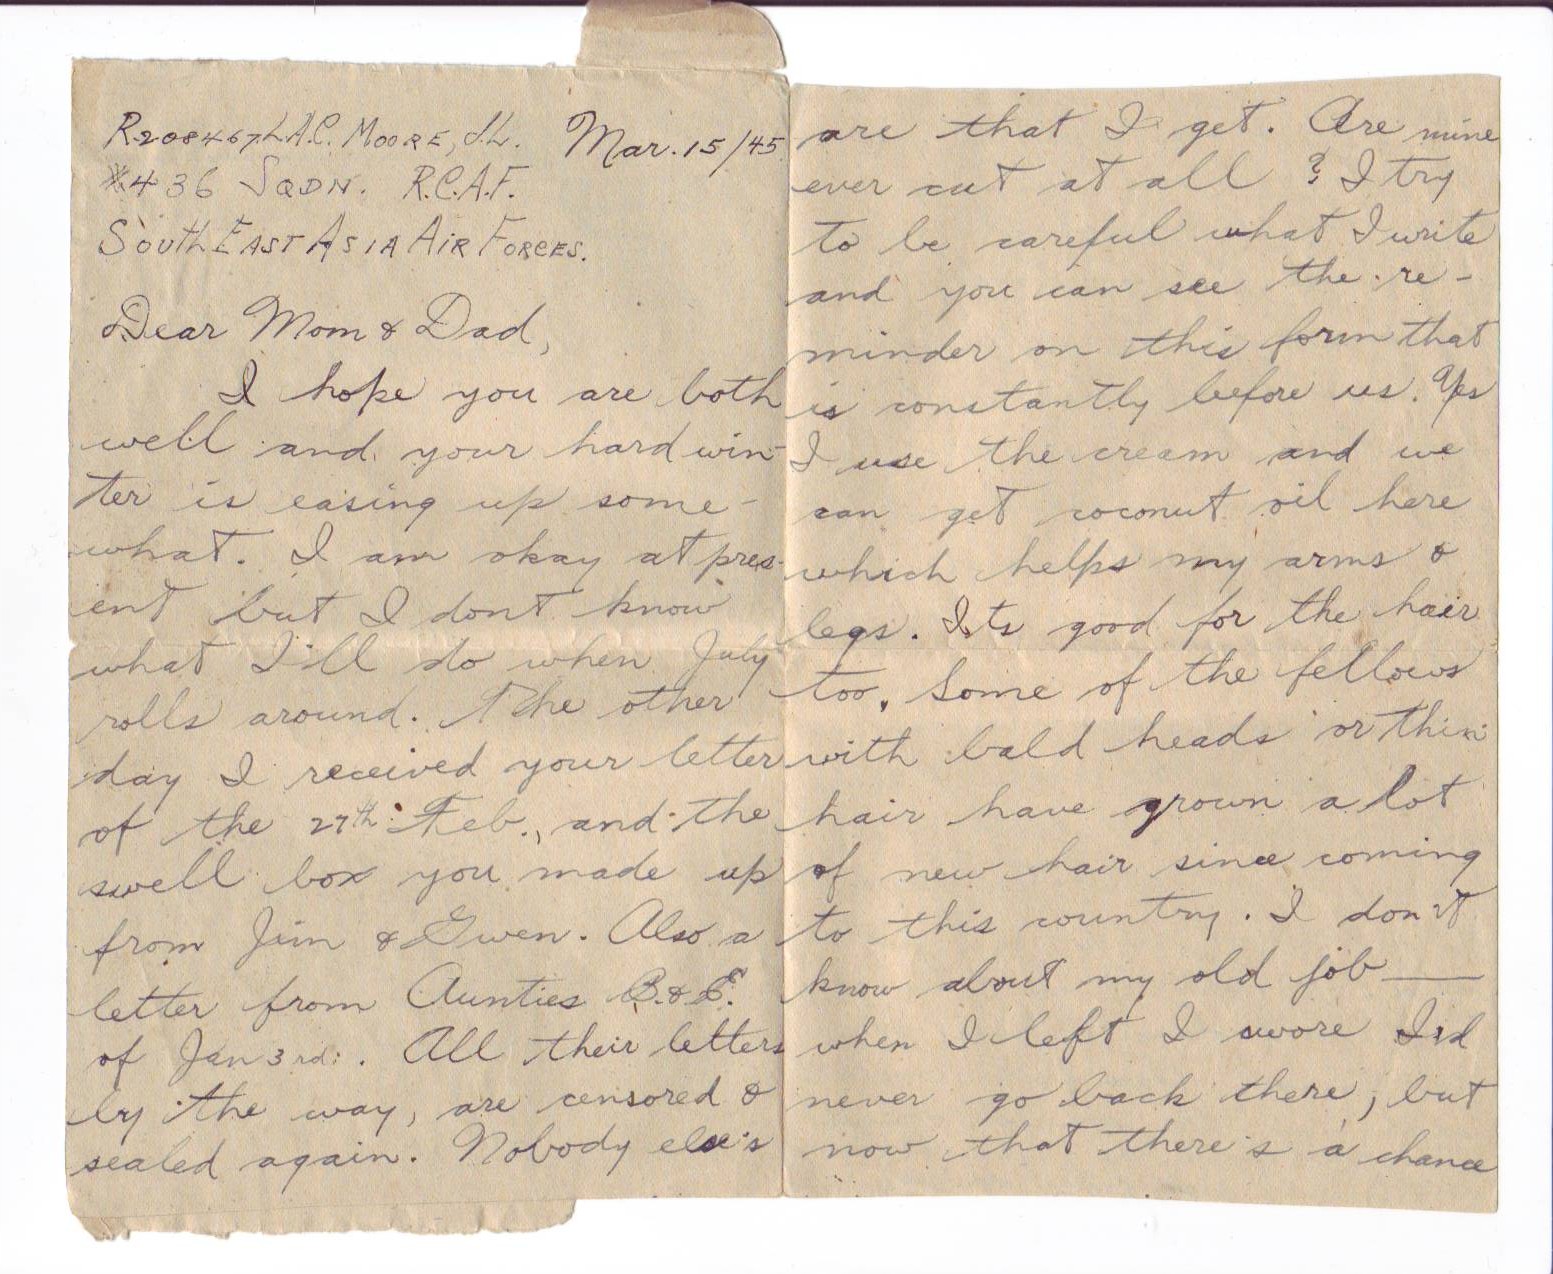 R208467 L.A.C. MOORE, J.L. Mar. 15/45
#436 SQDN. R.C.A.F.
SOUTH EAST ASIA AIR FORCES.
Dear Mom & Dad,
I hope you are both
well and your hard win-
ter is easing up some-
what. I am okay at pres-
ent but I dont know
what I'll do when July
rolls around. The other
day I received your letter
of the 27th Feb., and the
swell box you made up
from Jim & Gwen. Also a
letter from Aunties B. & E.
of Jan 3rd. All their letters
by the way, are censored &
sealed again. Nobody else's
are that I get. Are mine
ever cut at all? I try
to be careful what I write
and you can see the re-
minder on this form that
is constantly before us. Yes
I use the cream and we
can get coconut oil here
which helps my arms &
legs. Its good for the hair
too. Some of the fellows
with bald heads or thin
hair have grown a lot
of new hair since coming
to this country. I don't
know about my old job —
when I left I swore I'd
never go back there, but
now that there's a chance